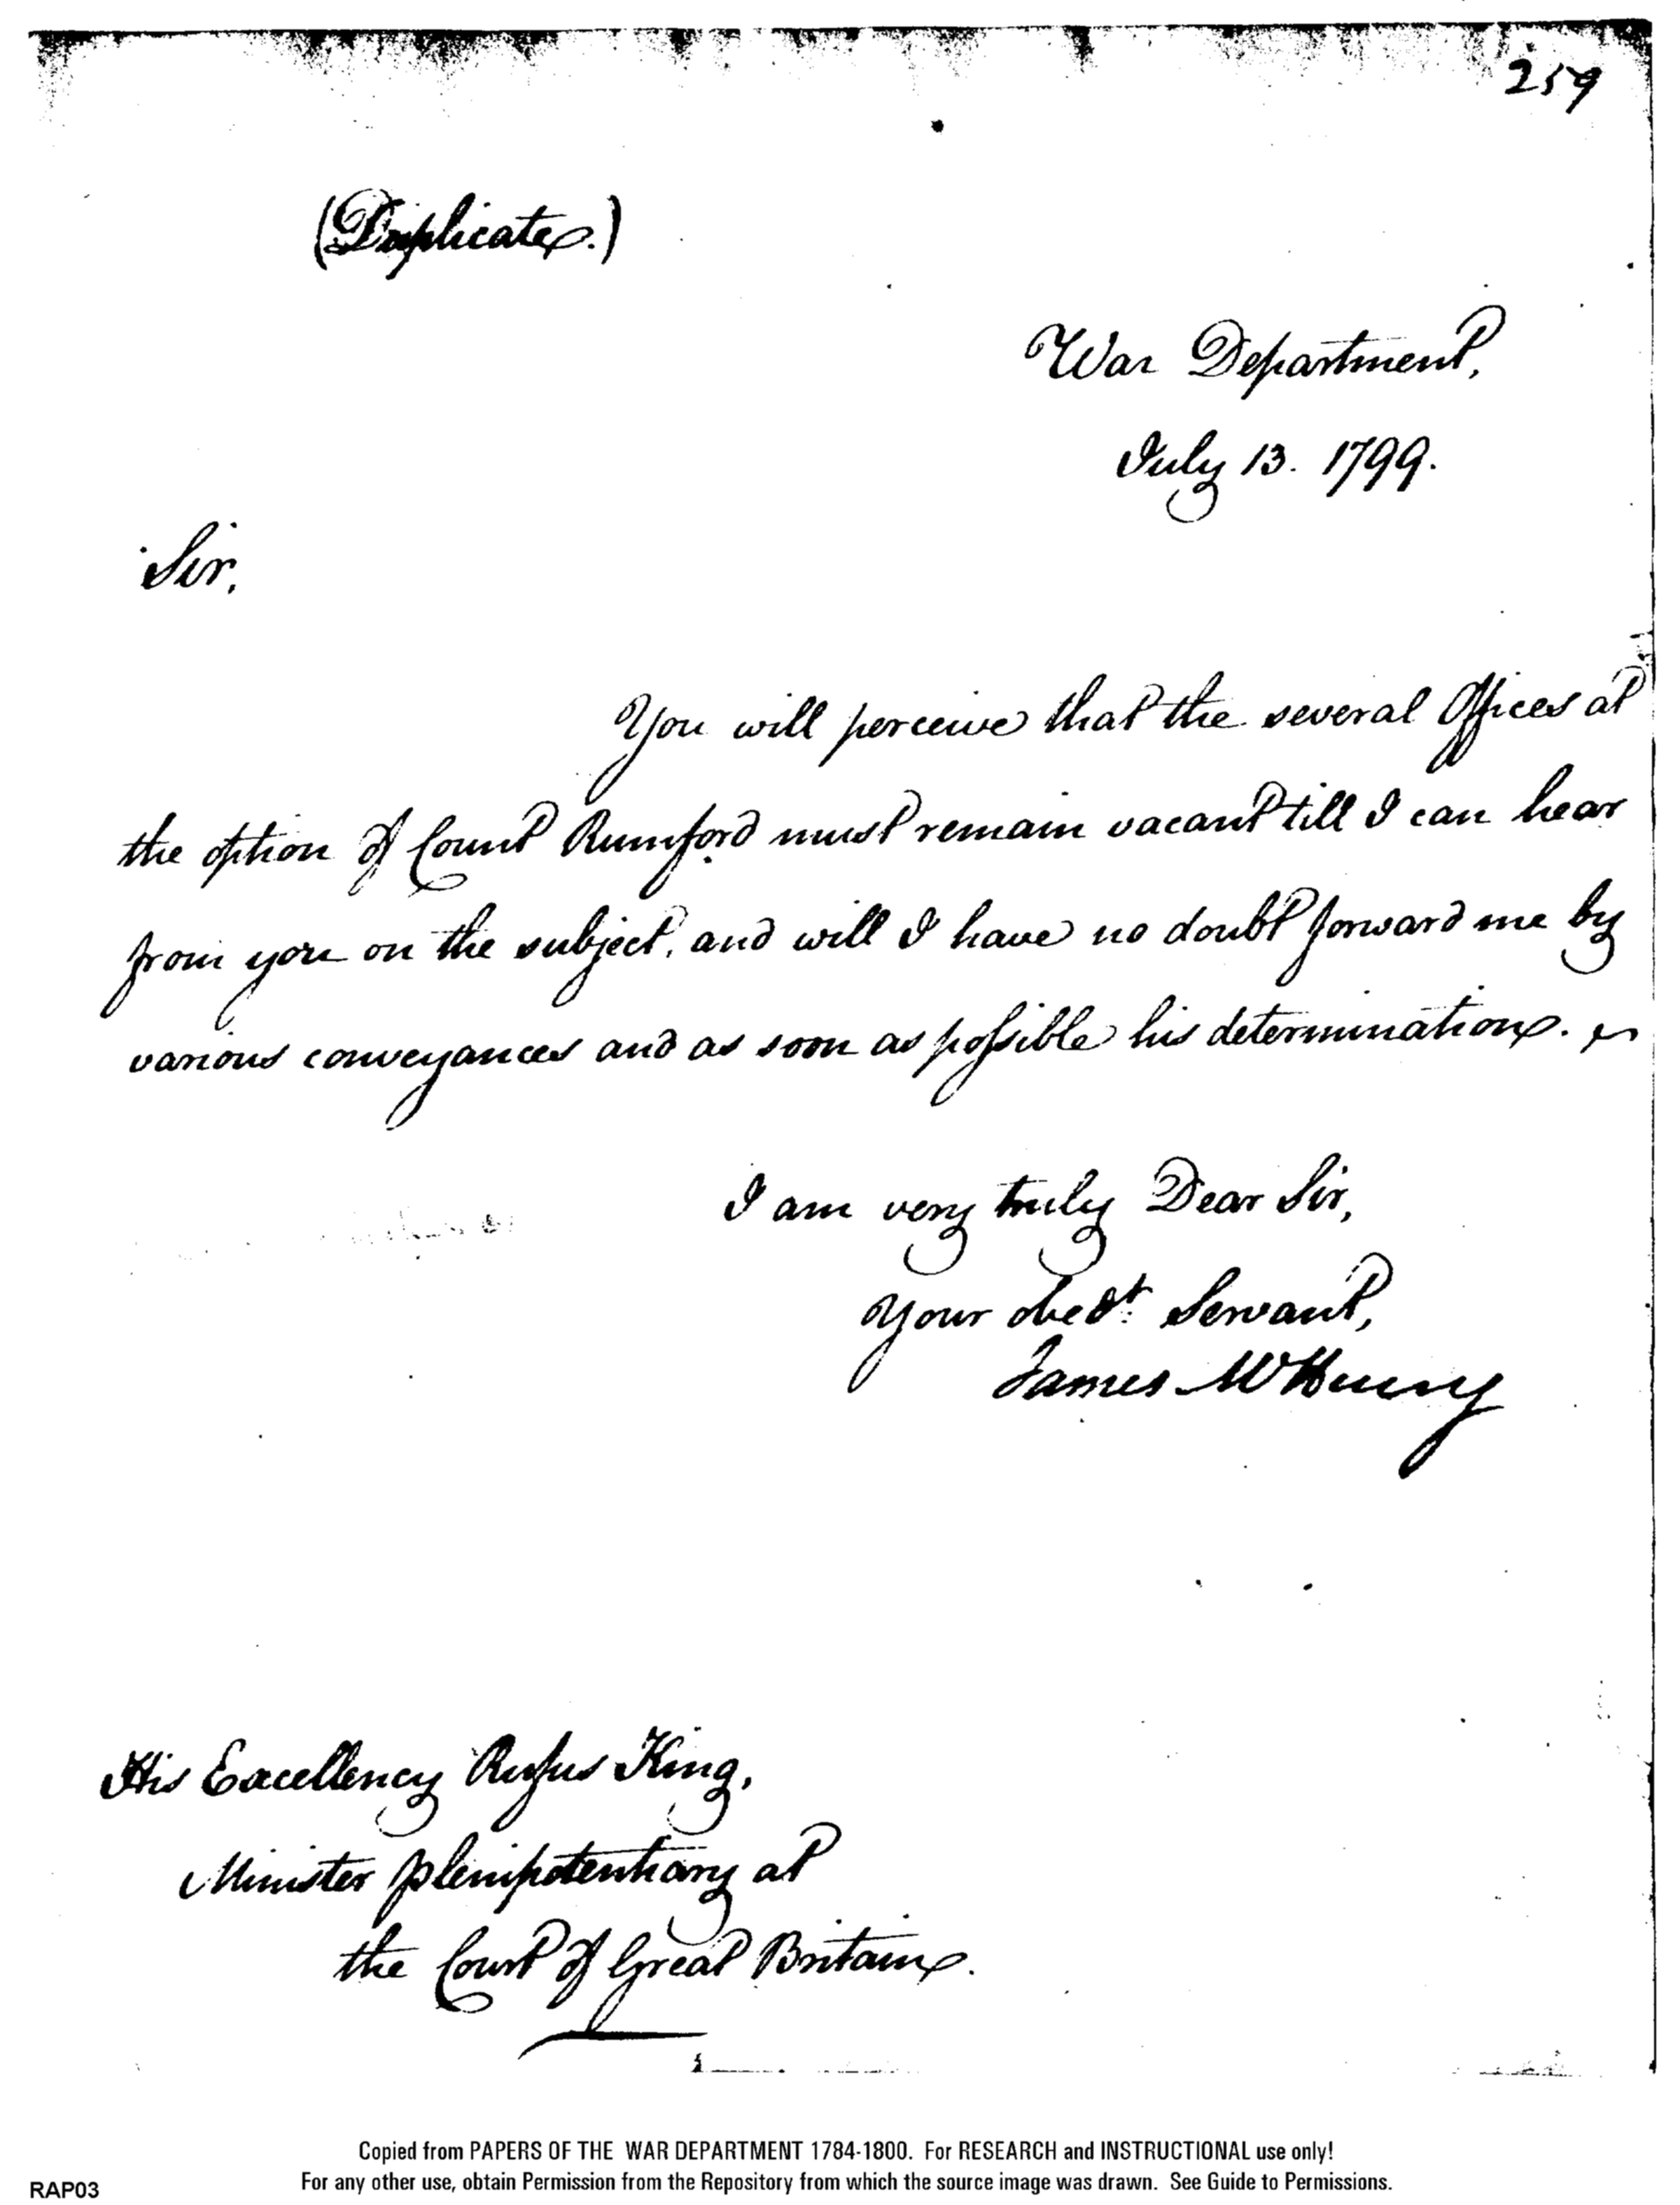 259
(Duplicate.)
War Department,
July 13. 1799.
Sir,
You will perceive that the several Offices at
the option of Count Rumford must remain vacant till I can hear
from you on the subject, and will I have no doubt forward me by
various conveyances and as soon as possible his determination.
I am very truly Dear Sir,
Your obedt. Servant,
James McHenry
His Excellency Rufus King,
Minister plenipotentiary at
the Court of Great Britain.
Copied from PAPERS OF THE WAR DEPARTMENT 1784-1800. For RESEARCH and INSTRUCTIONAL use only!
For any other use, obtain Permission from the Repository from which the source image was drawn. See Guide to Permissions.
RAP03